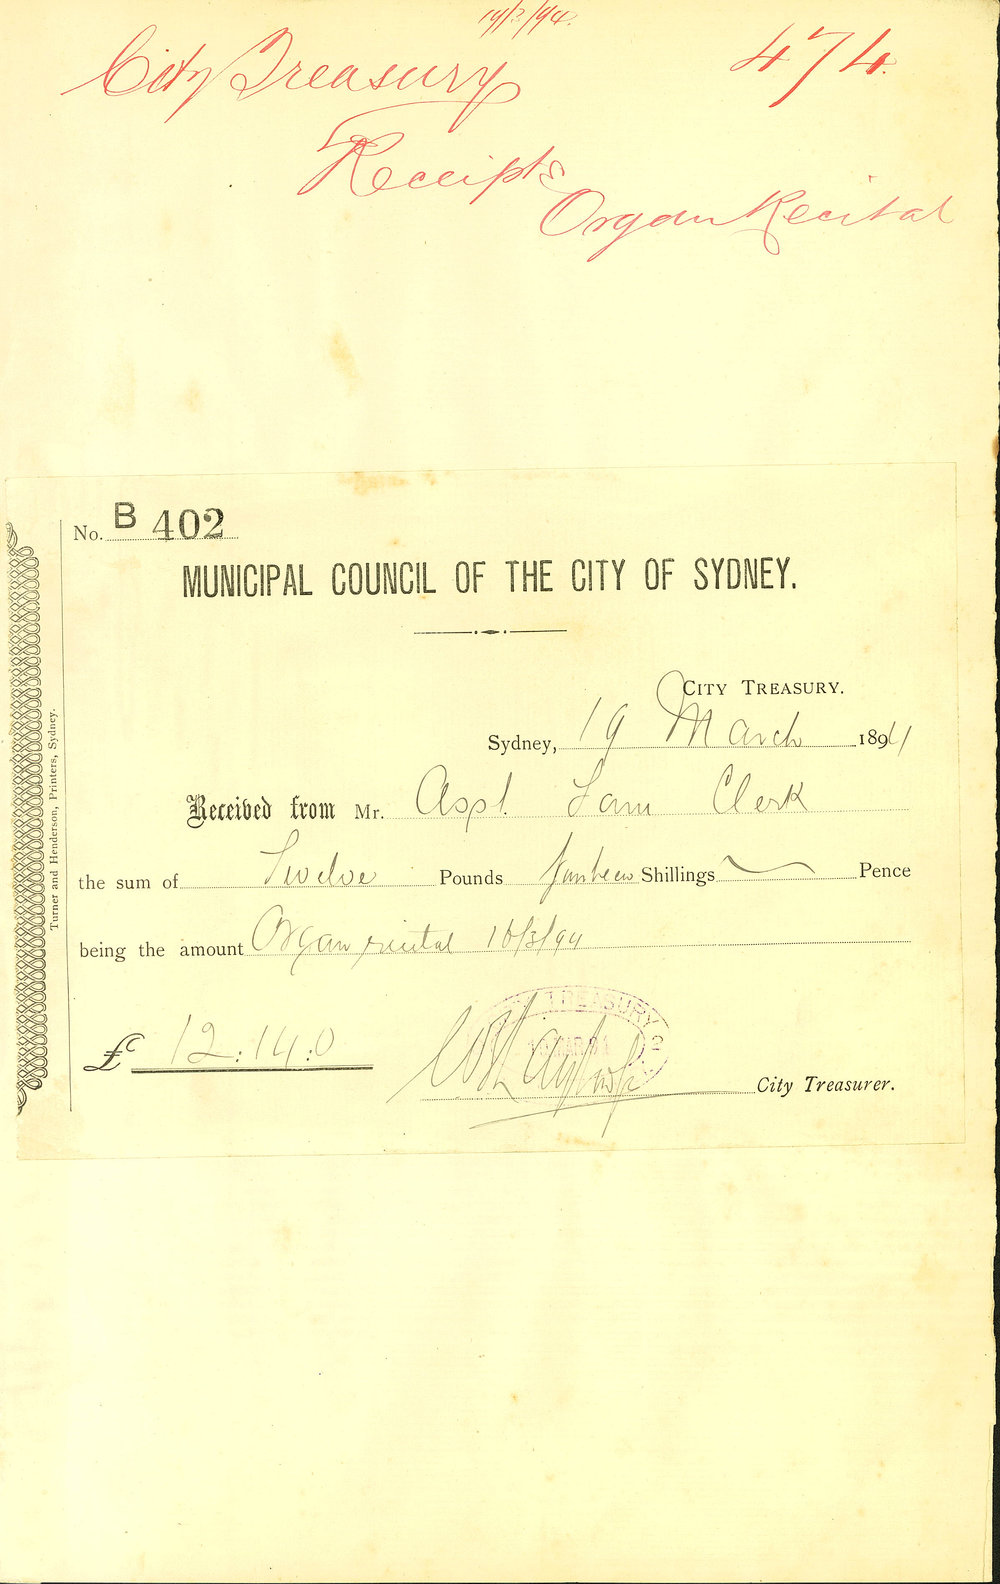 19/3/94.
City Treasury 474.
Receipts
Organ Recital
No. B 402
MUNICIPAL COUNCIL OF THE CITY OF SYDNEY.
CITY TREASURY.
Sydney, 19 March 1894
Received from Mr. Asst. Town Clerk
the sum of Twelve Pounds fourteen Shillings Pence
being the amount Organ recital 10/3/94
£ 12:14:0
TREASURY
City Treasurer.
Turner and Henderson, Printers, Sydney.